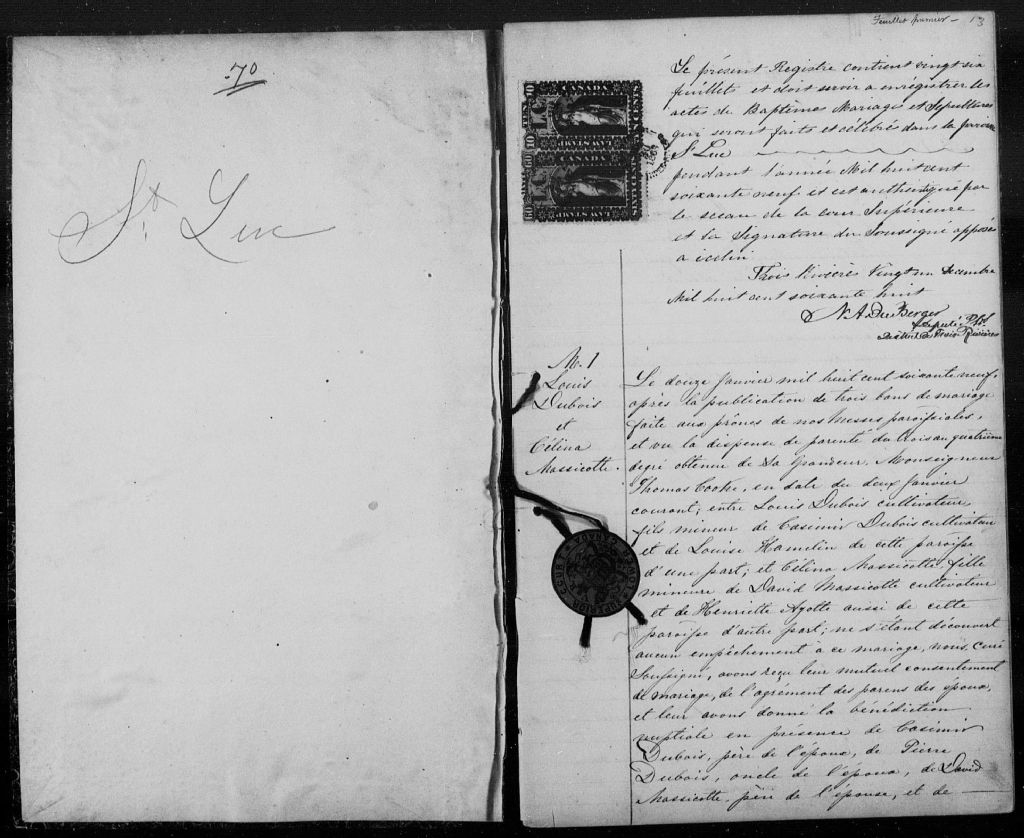 70
St. Luc
Feuillet premier - 13
Le présent Registre contient vingt six
feuillets et doit servir a enrégistrer les
actes de Baptêmes Mariages et Sepultures
qui seront faits et célébrés dans la paroisse
St Luc
pendant l'année Mil huit cent
soixante neuf et est authentiqué par
le sceau de la cour Supérieure
et la Signature du Soussigné apposés
a icelui
Trois Rivières Vingt un Decembre
Mil huit cent soixante huit
N. A. Du Berger
Député P.C.S.
District des Trois Rivières
CANADA
LAW STAMP
CANADA
LAW STAMP
M. 1
Louis
Dubois
et
Célina
Massicotte.
Le douze Janvier mil huit cent soixante neuf,
après la publication de trois bans de mariage
faite aux prônes de nos Messes paroissiales,
et vu la dispense de parenté du trois au quatrième
degré obtenue de Sa Grandeur, Monseigneur
Thomas Cooke, en date du deux Janvier
courant; entre Louis Dubois cultivateur,
fils mineur de Casimir Dubois cultivateur
et de Louise Hamelin de cette paroisse
d'une part; et Célina Massicotte, fille
mineure de David Massicotte cultivateur
et de Henriette Ayotte aussi de cette
paroisse d'autre part; ne s'étant découvert
aucun empêchement à ce mariage, nous, Curé
Soussigné, avons reçu leur mutuel consentement
de mariage, de l'agrément des parens des époux,
et leur avons donné la bénédiction
nuptiale en présence de Casimir
Dubois, père de l'époux, de Pierre
Dubois, oncle de l'époux, de David
Massicotte, père de l'épouse, et de